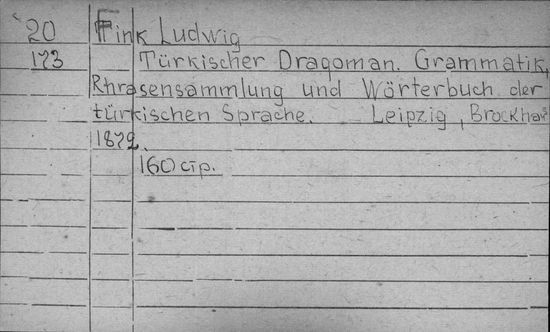 20 Fink Ludwig
173 Türkischer Dragoman. Grammatik,
Rhrasensammlung und Wörterbuch der
türkischen Sprache. Leipzig, Brockhaus
1872.
160 cтр.